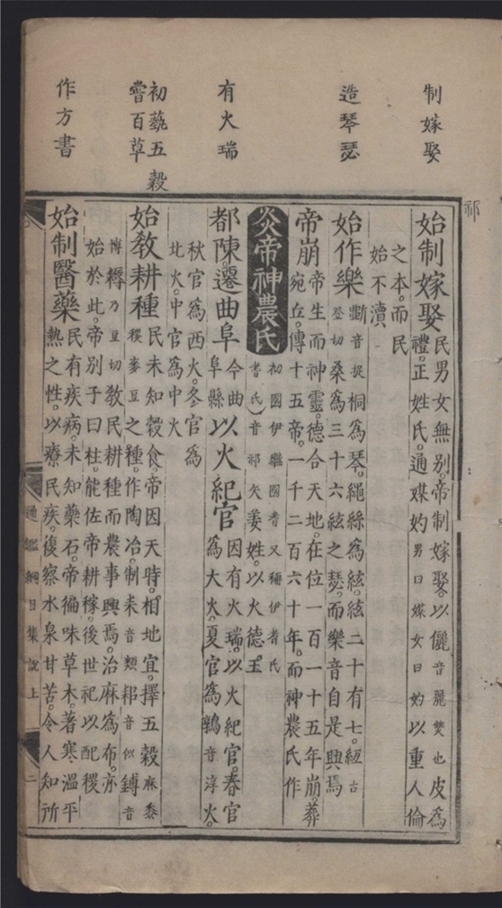 制嫁娶
造琴瑟
有火瑞
初蓺五穀
嘗百草
作方書
祁
始制嫁娶民男女無別帝制嫁娶以儷音麗雙也皮為
禮正姓氏通媒妁男曰媒女曰妁以重人倫
之本而民
始不瀆
始作樂斲音捉桐為琴繩絲為絃絃二十有七絙古
登切桑為三十六絃之瑟而樂音自是興焉
帝崩帝生而神靈德合天地在位一百一十五年崩葬
宛丘傳十五帝一千二百六十年而神農氏作
炎帝神農氏初國伊繼國耆又稱伊耆氏
耆氏音祁矢姜姓以火德王
都陳遷曲阜今曲
阜縣以火紀官因有火瑞以火紀官春官
為大火夏官為鶉音淳火
秋官為西火冬官為
北火中官為中火
始教耕種民未知穀食帝因天時相地宜擇五穀麻黍
稷麥豆之種作陶冶制耒音類耜音似鎛音
博耨乃豆切教民耕種而農事興焉治麻為布亦
始於此帝別子曰柱能佐帝耕稼後世祀以配稷
始制醫藥民有疾病未知藥石帝徧味草木著寒溫平
熱之性以療民疾復察水泉甘苦令人知所
通鑑綱目集說上
二